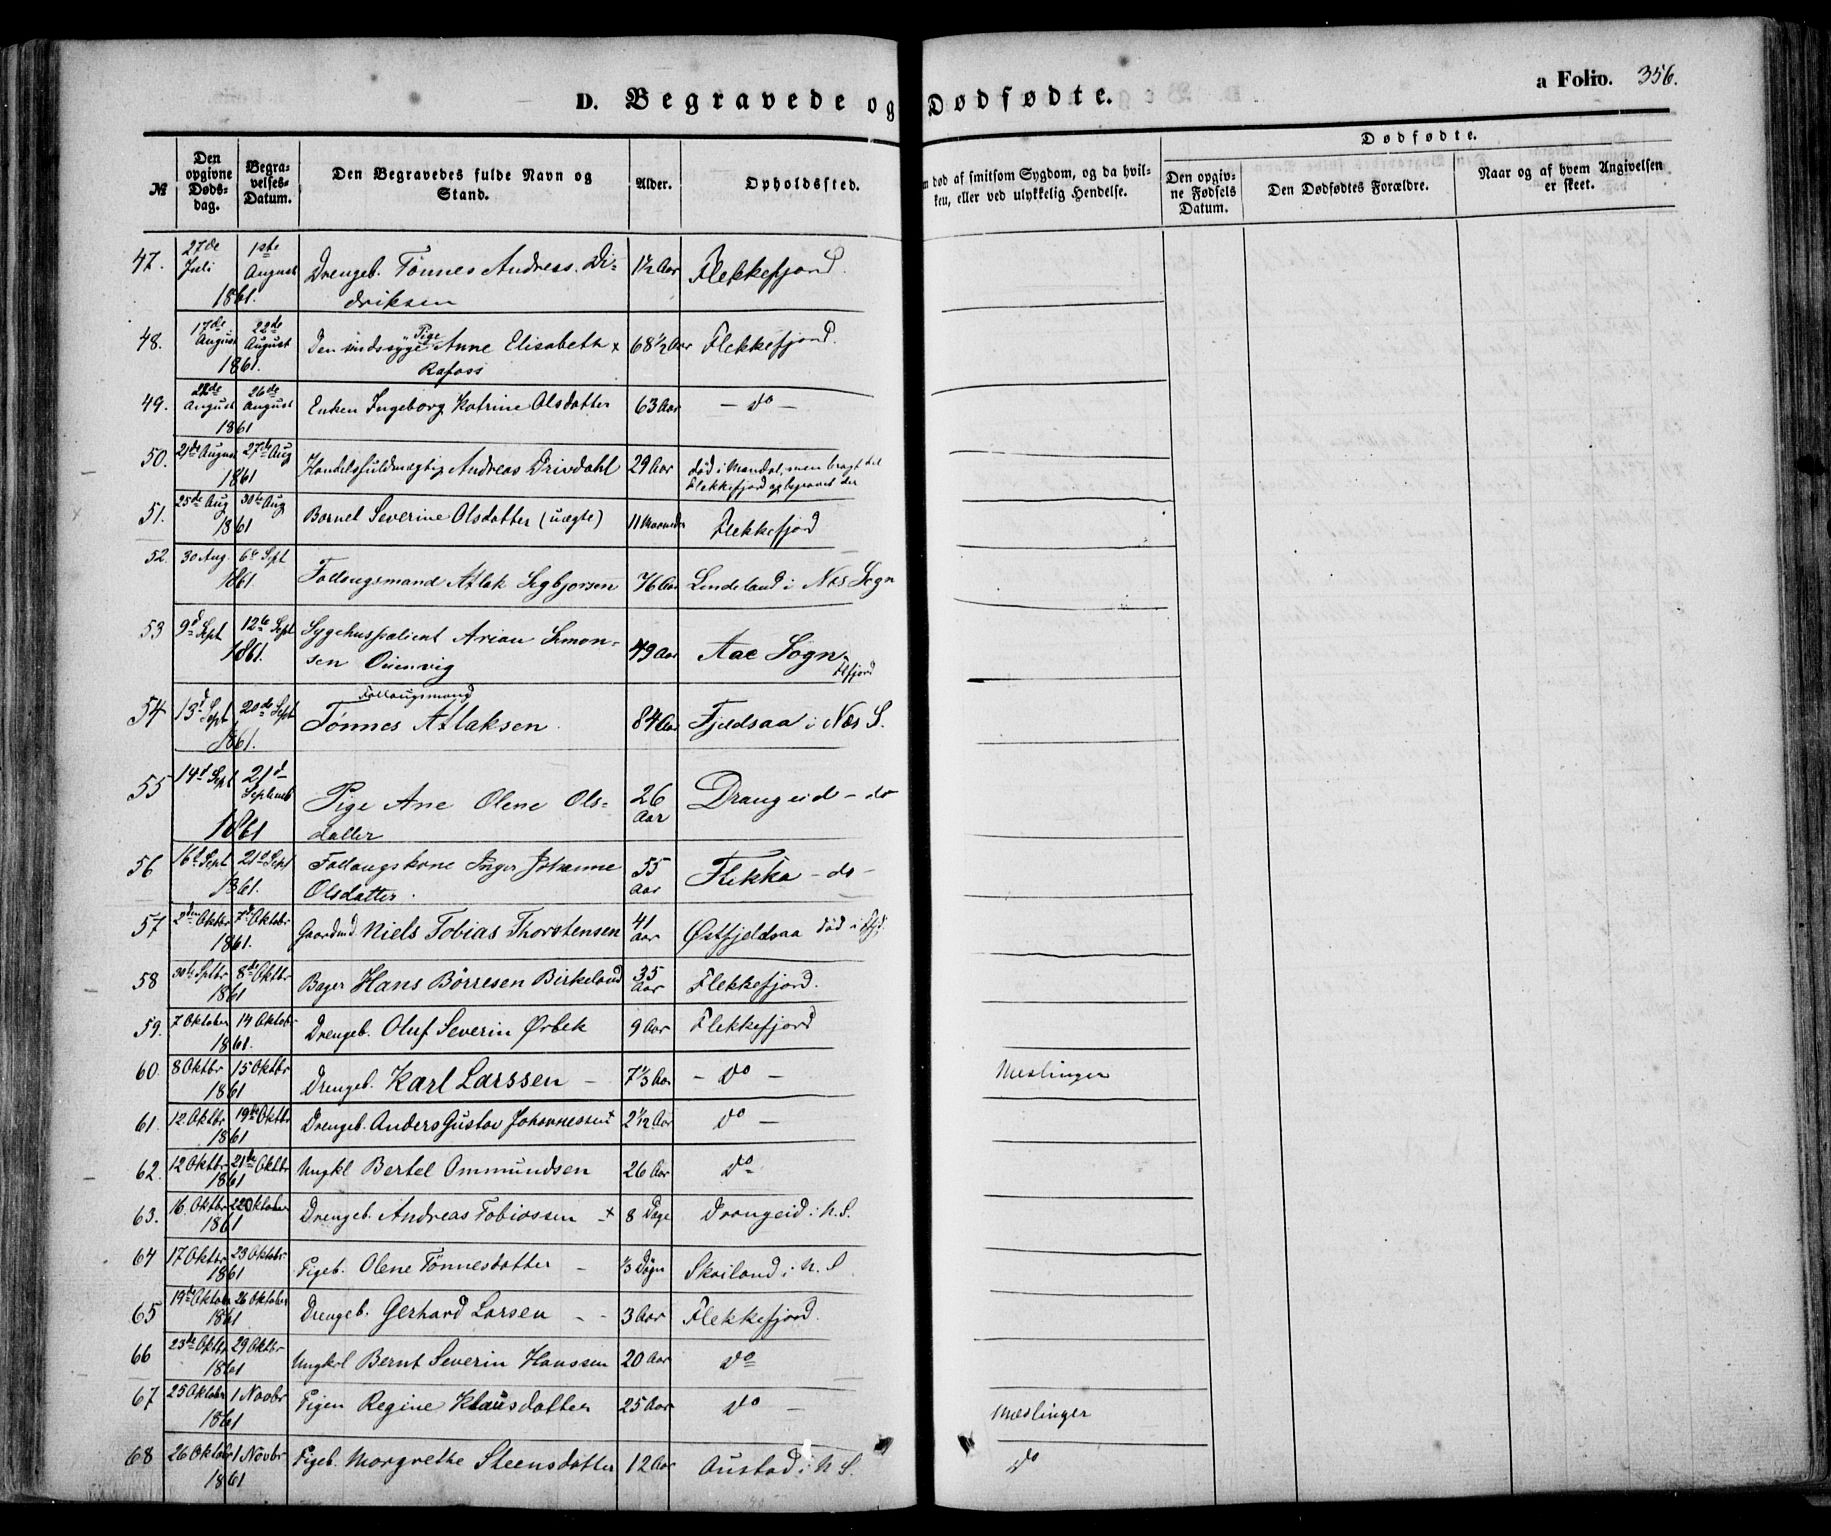 D. Begravede og Dødfødte.
a Folio. 356.
№
Den opgivne Døds-dag.
Begra-velses-Datum.
Den Begravedes fulde Navn og Stand.
Alder.
Opholdssted.
død af smitsom Sygdom, og da hvil-
ken, eller ved ulykkelig Hendelse.
Dødfødte.
Den opgiv-ne Fødsels Datum.
Den Dødfødtes Forældre.
Naar og af hvem Angivelsen er skeet.
47. 27de Juli 1ste August 1861. Drengeb. Tønnes Andreas Di- 1½ Aar Flekkefjord.
driksen
48. 17de August 22de August 1861. Den sindssyge Pige Anne Elisabeth x 68½ Aar Flekkefjord.
Rafoss
49. 22de August 26de August 1861 Enken Ingeborg Katrine Olsdatter 63 Aar – do –
50. 21de August 27de Aug 1861 Handelsfuldmægtig Andreas Drivdahl 29 Aar død i Mandal, men bragt til
Flekkefjord og begravet der
51. 25de Aug 30te Aug 1861 Barnet Severine Olsdatter (uægte) 11 Maaneder Flekkefjord
52. 30 Aug. 6te Sept 1861. Follaugsmand Atlak Segbjørsen 76 Aar Lindeland i Næs Sogn
53 9d Sept 12te Sept 1861. Sygehuspatient Arian Simon- 49 Aar Aae Sogn
sen
54 13d Sept 20de Sept 1861. Follaugsmand
Tønnes Atlaksen. 84 Aar Fjeldsaa i Næs S.
55 14d Sept 21d September 1861 Pige Ane Olene Ols- 26 Aar Drangeid – do
datter
56 16d Sept 21d Sept 1861. Follaugskone Inger Johanne 55 Aar Flikka – do –
Olsdatter.
57 2den Oktbr 7de Oktobr 1861. Gaardmd Niels Tobias Thorstensen 41 Aar Østfjeldsaa død i
58 30te Sptbr 8de Oktbr 1861 Bager Hans Börresen Birkeland 35 Aar Flekkefjord.
59. 7 Oktober 14 Oktobr 1861. Drengeb. Oluf Severin Ørbek 9 Aar Flekkefjord
60. 8 Oktbr 15 Oktbr 1861 Drengeb. Karl Larssen – 7⅓ Aar – do – Meslinger
61. 12 Oktbr 19de Oktbr 1861 Drengeb. Anders Gustav Johannessen + 2½ Aar do –
62. 12 Oktbr 21de Oktbr 1861 Ungkl Bertel Ommundsen 26 Aar do
63. 16. Oktbr 22 Oktober 1861 Drengeb. Andreas Tobiassen – + 8 Dage Drangeid i N.S.
64 17 Oktbr 23 Oktobr 1861 Pigeb. Olene Tønnesdatter – ⅓ Døgn Skoiland i N. S
65 19de Oktober 26 Oktober 1861 Drengeb. Gerhard Larsen – – 3 Aar Flekkefjord.
66 23de Oktbr 29 Oktbr 1861 Ungkrl Bernt Severin Hanssen 20 Aar do
67 25 Oktober 1 Novbr 1861 Pigen Regine Klausdatter 25 Aar do – Mæslinger
68 26 Oktobr 1 Novbr 1861 Pigeb. Margrethe Steensdatter 12 Aar Austad i N S. do